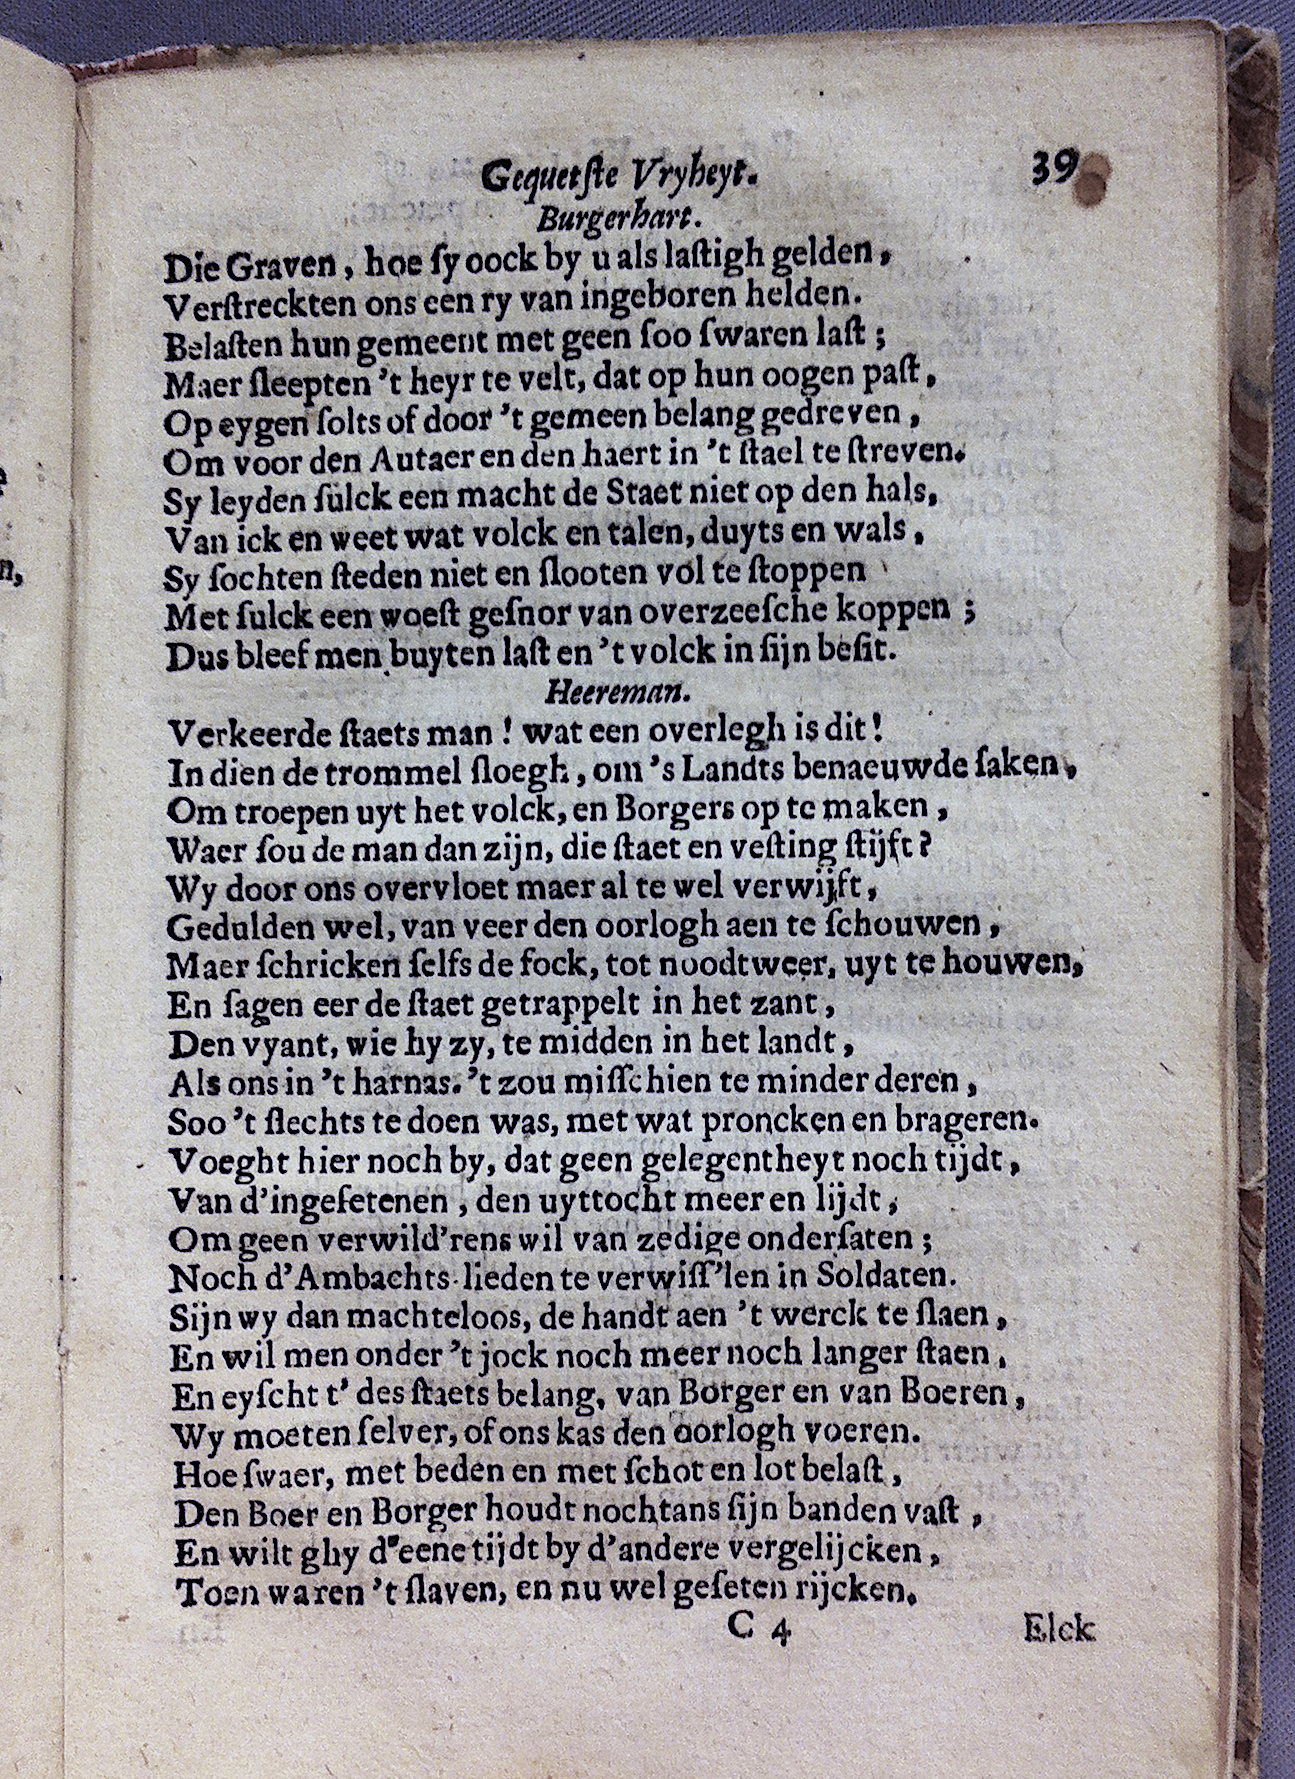 Gequetſte Vryheyt. 39
Burgerhart.
Die Graven, hoe ſy oock by u als laſtigh gelden,
Verſtreckten ons een ry van ingeboren helden.
Belaſten hun gemeent met geen ſoo ſwaren laſt;
Maer ſleepten 't heyr te velt, dat op hun oogen paſt,
Op eygen ſolts of door 't gemeen belang gedreven,
Om voor den Autaer en den haert in 't ſtael te ſtreven.
Sy leyden ſulck een macht de Staet niet op den hals,
Van ick en weet wat volck en talen, duyts en wals,
Sy ſochten ſteden niet en ſlooten vol te ſtoppen
Met ſulck een woeſt geſnor van overzeeſche koppen;
Dus bleef men buyten laſt en 't volck in ſijn beſit.
Heereman.
Verkeerde ſtaets man! wat een overlegh is dit!
In dien de trommel ſloegh, om 's Landts benaeuwde ſaken,
Om troepen uyt het volck, en Borgers op te maken,
Waer ſou de man dan zijn, die ſtaet en veſting ſtijft?
Wy door ons overvloet maer al te wel verwijft,
Gedulden wel, van veer den oorlogh aen te ſchouwen,
Maer ſchricken ſelfs de fock, tot noodtweer, uyt te houwen,
En ſagen eer de ſtaet getrappelt in het zant,
Den vyant, wie hy zy, te midden in het landt,
Als ons in 't harnas. 't zou miſſchien te minder deren,
Soo 't ſlechts te doen was, met wat proncken en brageren.
Voeght hier noch by, dat geen gelegentheyt noch tijdt,
Van d'ingeſetenen, den uyttocht meer en lijdt,
Om geen verwild'rens wil van zedige onderſaten;
Noch d'Ambachts-lieden te verwiſſ'len in Soldaten.
Sijn wy dan machteloos, de handt aen 't werck te ſlaen,
En wil men onder 't jock noch meer noch langer ſtaen,
En eyſcht t' des ſtaets belang, van Borger en van Boeren,
Wy moeten ſelver, of ons kas den oorlogh voeren.
Hoe ſwaer, met beden en met ſchot en lot belaſt,
Den Boer en Borger houdt nochtans ſijn banden vaſt,
En wilt ghy d'eene tijdt by d'andere vergelijcken,
Toen waren 't ſlaven, en nu wel geſeten rijcken.
C 4 Elck